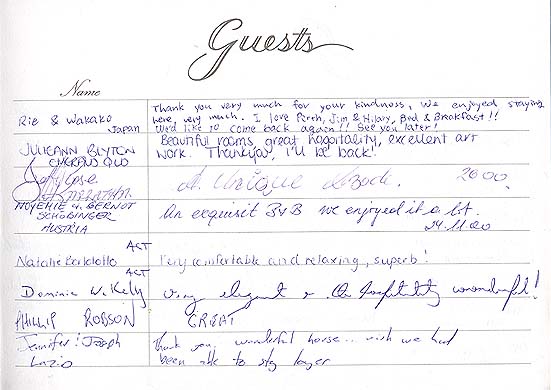 Guests
Name
Rie & Wakako
Japan
Thank you very much for your kindness, We enjoyed staying
here, very much. I love Perth, Jim & Hilary, Bed & Breakfast!!
We'd like to come back again!! See you later!
JULIEANN BLYTON
EMERALD QLD
Beautiful rooms, great hospitality, excellent art
work. Thankyou, I'll be back!
A Unique Abode. 2000
NOYEMIE u. GERNOT
SCHÖBINGER
AUSTRIA
An exquisit B+B we enjoyed it a lot.
24.11.00
Natalie Bortolotto ACT
Very comfortable and relaxing, superb!
Dominic W. Kelly ACT
Very elegant & the hospitality wonderful!
PHILLIP ROBSON
GREAT
Jennifer & Joseph
Lazio
Thank you, wonderful house.. wish we had
been able to stay longer